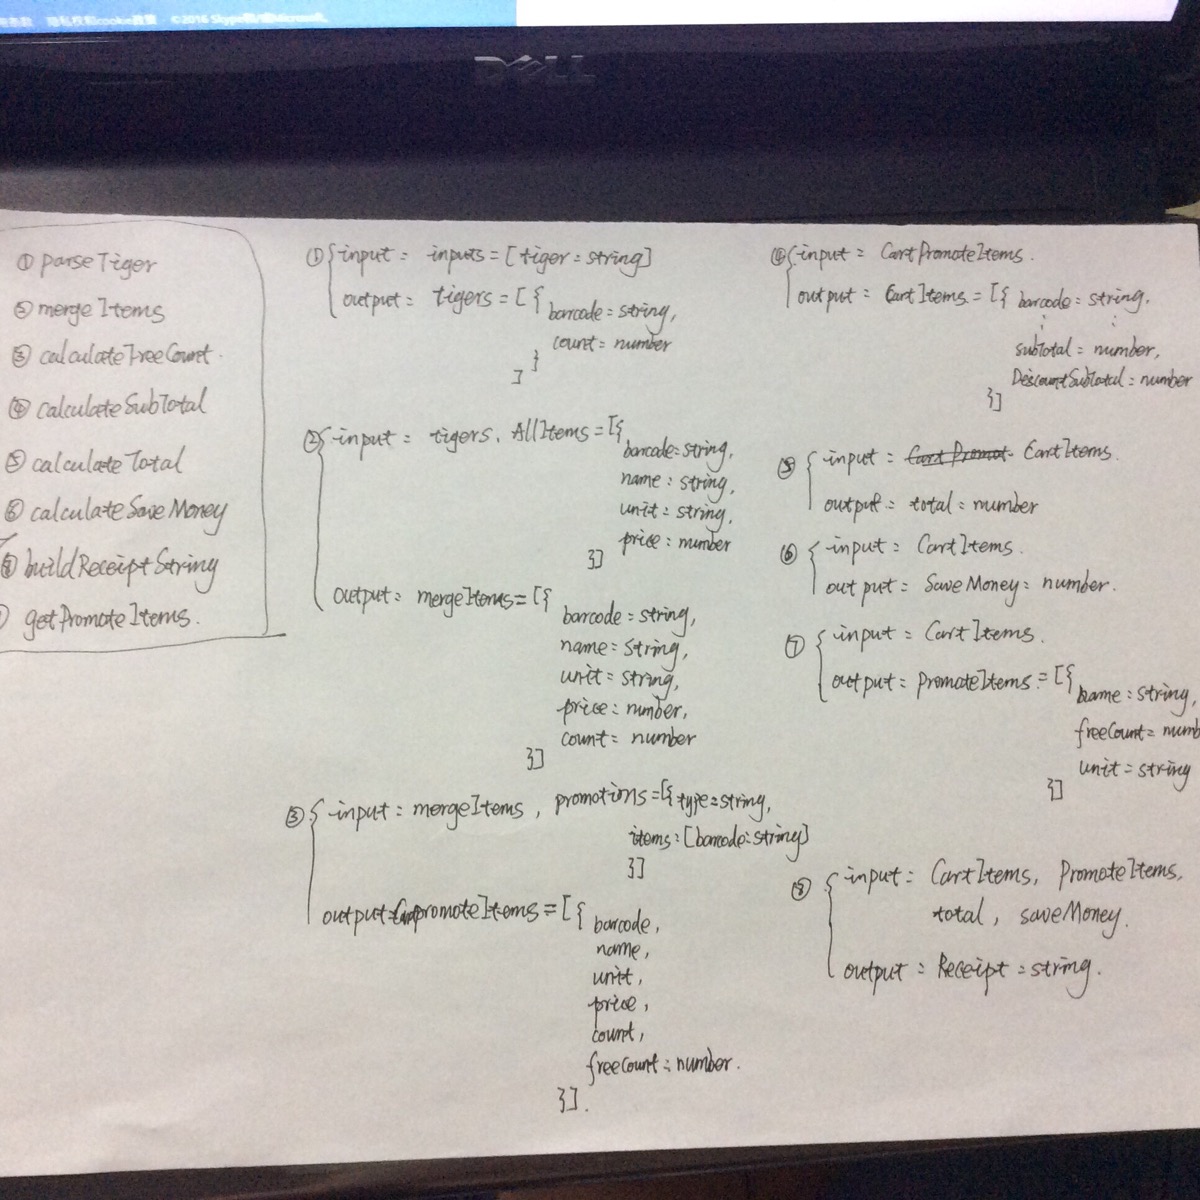 隐私权和cookie政策 ©2016 Skype和/或Microsoft。
DELL
① parseTiger
② mergeItems
③ calculateFreeCount.
④ calculateSubTotal
⑤ calculateTotal
⑥ calculateSaveMoney
⑧ buildReceiptString
getPromoteItems.
① input: inputs=[tiger:string]
output: tigers=[{
barcode:string,
count:number
}
]
② input: tigers, AllItems=[{
barcode:string,
name:string,
unit:string,
price:number
}]
output: mergeItems=[{
barcode:string,
name:string,
unit:string,
price:number,
count:number
}]
③ input: mergeItems, promotions=[{type:string,
items:[barcode:string]
}]
output: CartpromoteItems=[{
barcode,
name,
unit,
price,
count,
freeCount:number.
}].
④ input: CartPromoteItems.
output: CartItems=[{ barcode:string,
⋮ ⋮
subtotal:number,
DescountSubTotal:number
}]
⑤ input: Cart Promot. CartItems.
output: total:number
⑥ input: CartItems.
output: SaveMoney:number.
⑦ input: CartItems.
output: PromoteItems:=[{
name:string,
freeCount:numb
unit:string
}]
⑧ input: CartItems, PromoteItems,
total, saveMoney.
output: Receipt:string.